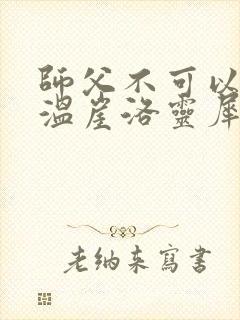 師父不可以
溫崖洛靈犀
老納來寫書